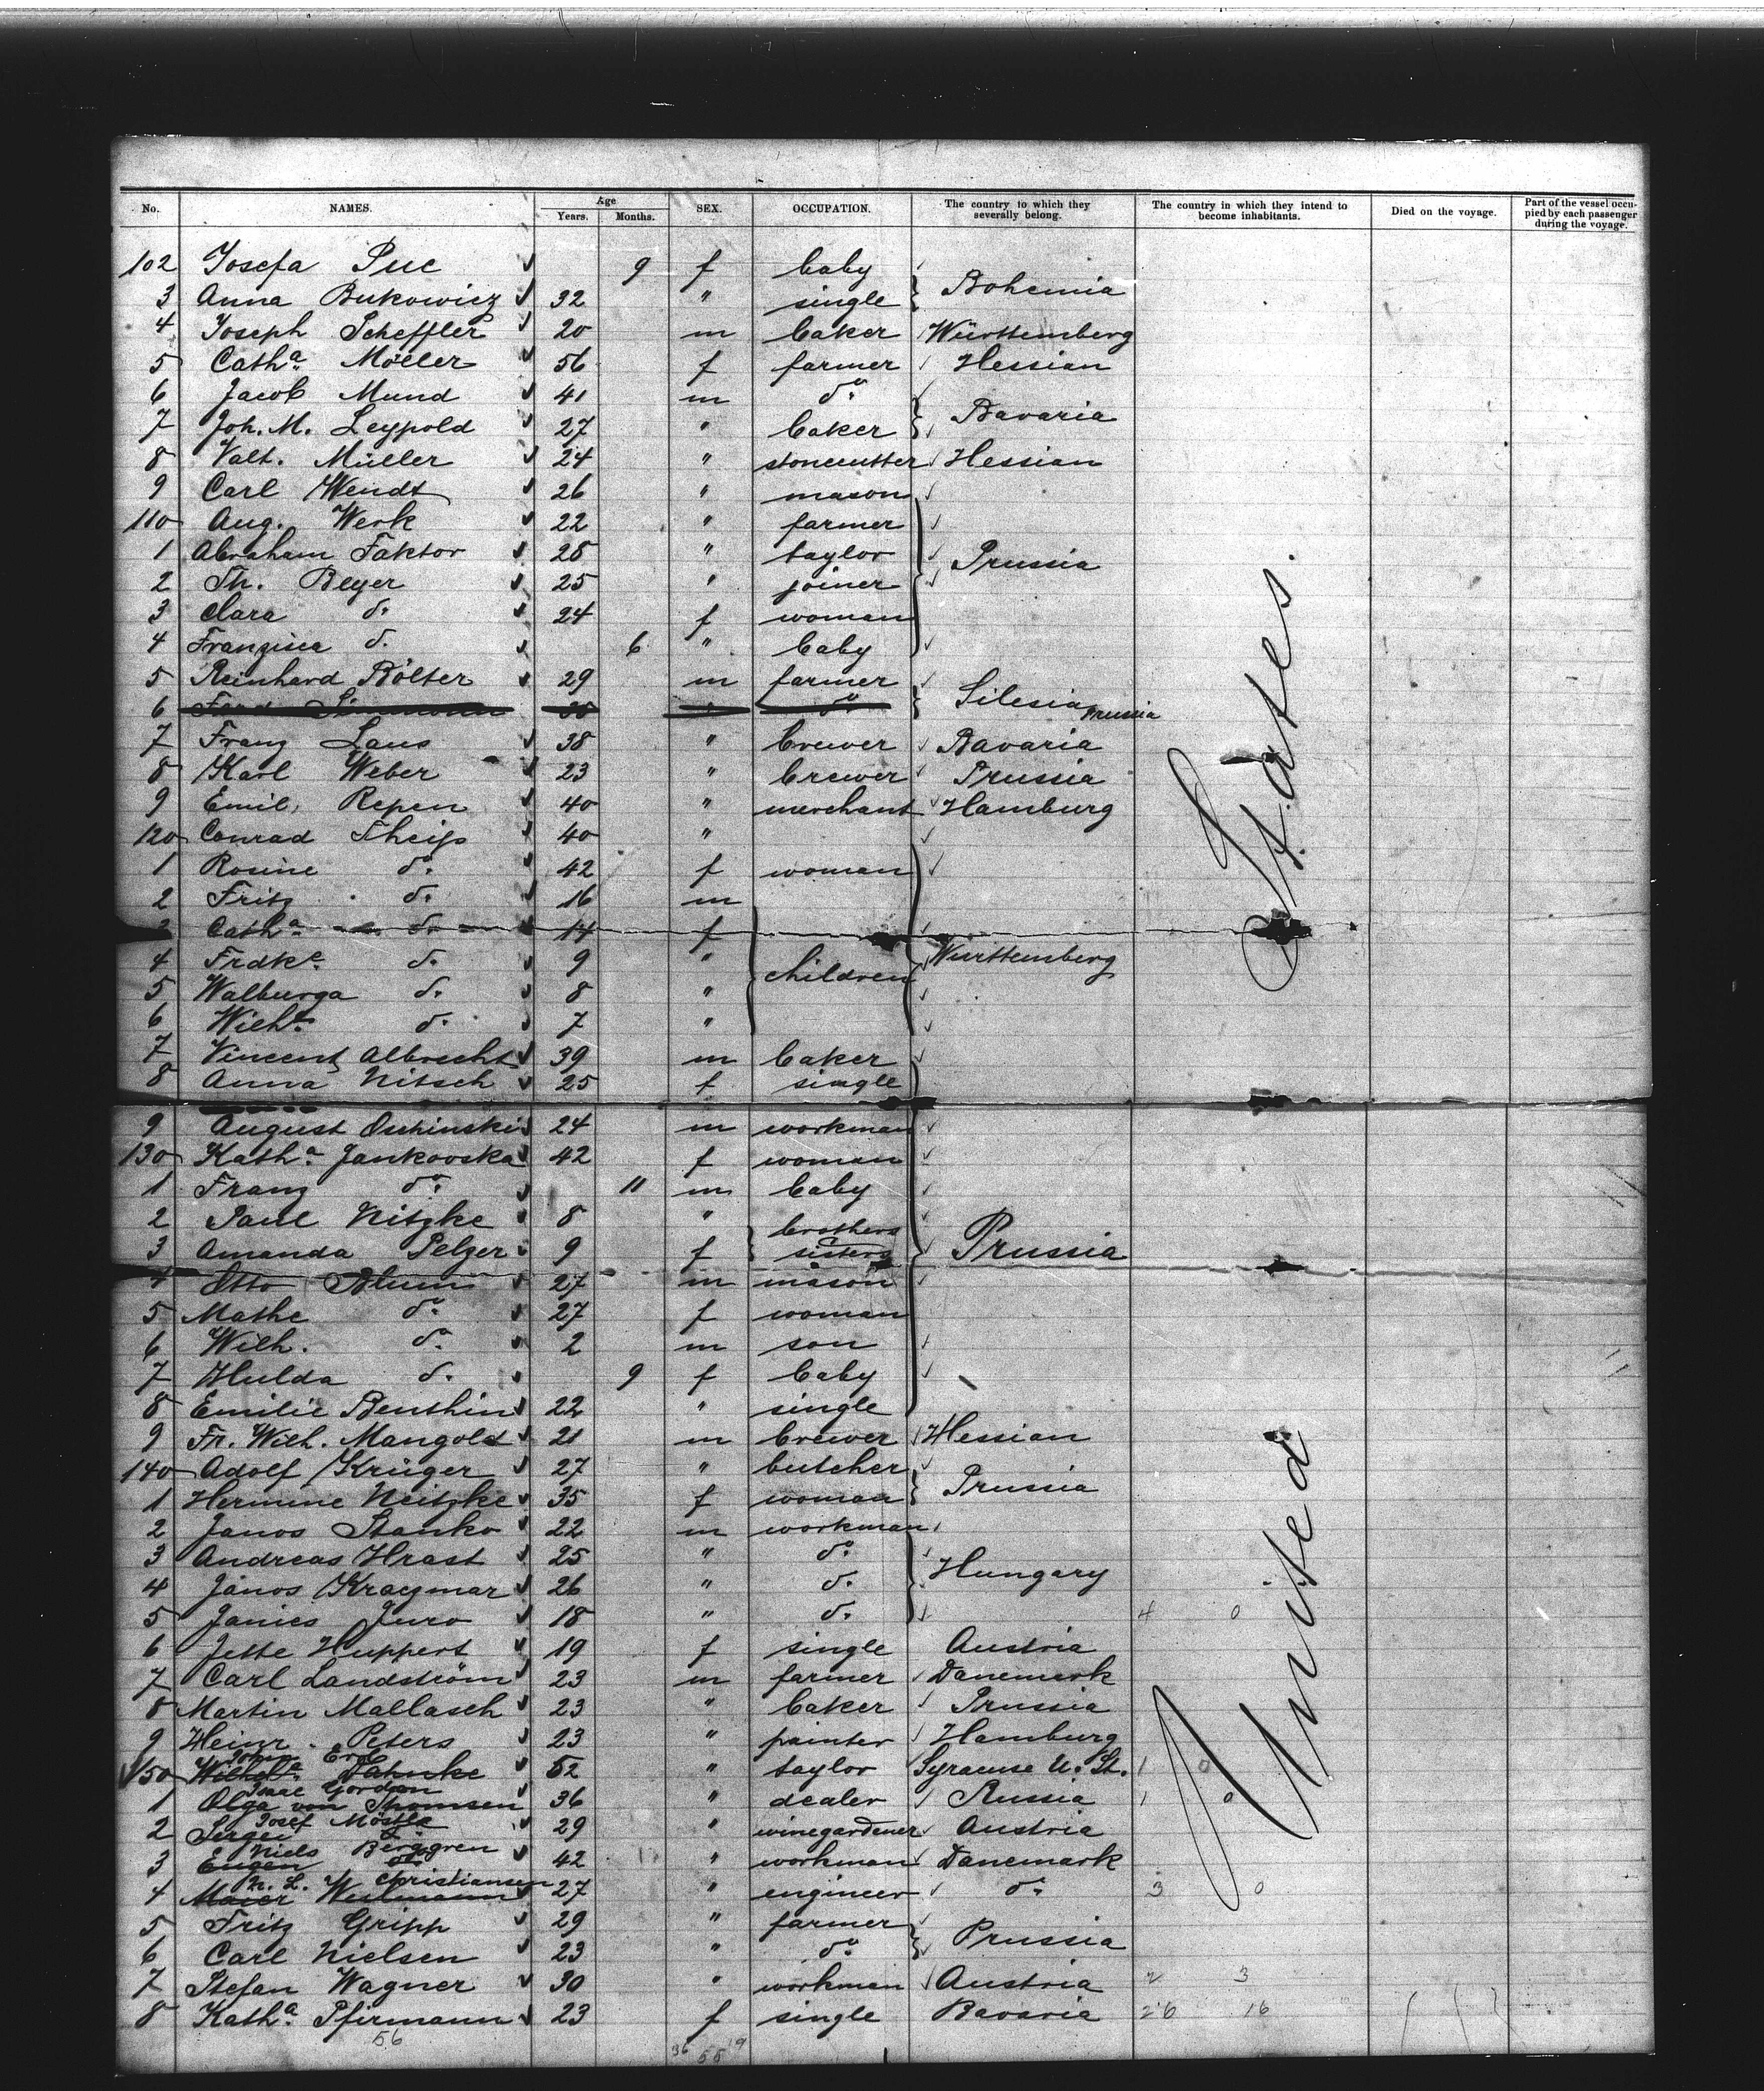 No. NAMES. Age Years. Months. SEX. OCCUPATION. The country to which they severally belong. The country in which they intend to become inhabitants. Died on the voyage. Part of the vessel occupied by each passenger during the voyage.
102 Josefa Puc 9 f baby
3 Anna Bukowicz 32 " single } Bohemia
4 Joseph Scheffler 20 m baker Württemberg
5 Cath.a Möller 56 f farmer Hessian
6 Jacob Mund 41 m do.
7 Joh. M. Leypold 27 " baker } Bavaria
8 Valt. Müller 24 " stonecutter Hessian
9 Carl Wendt 26 " mason
110 Aug. Werk 22 " farmer
1 Abraham Faktor 28 " taylor } Prussia
2 Th. Beyer 25 " joiner
3 Clara do. 24 f woman
4 Franzisca do. 6 " baby
5 Reinhard Bölter 29 m farmer
6 do } Silesia Prussia
7 Franz Laus 38 " brewer Bavaria
8 Karl Weber 23 " brewer Prussia
9 Emil Repen 40 " merchant Hamburg
120 Conrad Theiss 40 "
1 Rosine do. 42 f woman
2 Fritz do. 16 m
3 Cath.a do. 14 f
4 Frdke. do. 9 " children Württemberg
5 Walburga do. 8 "
6 Wilh. do. 7 "
7 Vincent Albrecht 39 m baker
8 Anna Nitsch 25 f single
9 August Oschinski 24 m workman
130 Kath.a Jankovska 42 f woman
1 Franz do. 11 m baby
2 Paul Nitzke 8 " brothers
3 Amanda Pelzer 9 f sisters } Prussia
4 Otto Blum 27 m mason
5 Mathe do. 27 f woman
6 Wilh. do. 2 m son
7 Hulda do. 9 f baby
8 Emilie Benthin 22 " single
9 Fr. Wilh. Mangold 21 m brewer Hessian
140 Adolf Krüger 27 " butcher
1 Hermine Neitzke 35 f woman } Prussia
2 Janos Stanko 22 m workman
3 Andreas Hrast 25 " do.
4 Janos Kraczmar 26 " do. } Hungary
5 Janies Juro 18 " do. 4 0
6 Jette Huppert 19 f single Austria
7 Carl Landström 23 m farmer Danemark
8 Martin Mallasch 23 " baker Prussia
9 Heinr. Peters 23 " painter Hamburg
John Erd
150 Wilhel.a Jahnke 52 " taylor Syracuse U. St. 1 0
Isaac Gordon
1 Olga von Thomsen 36 " dealer Russia 1 0
Josef Möstle
2 Sergei do. 29 " winegardener Austria
Niels Berggren
3 Eugen do. 42 " workman Danemark
N. L. Christiansen
4 Maier Westmann 27 " engineer do. 3 0
5 Fritz Gripp 29 " farmer
6 Carl Nielsen 23 " do. } Prussia
7 Stefan Wagner 30 " workman Austria 2 3
8 Kath.a Pfirmann 23 f single Bavaria 26 16
56 36 55 19
United States.